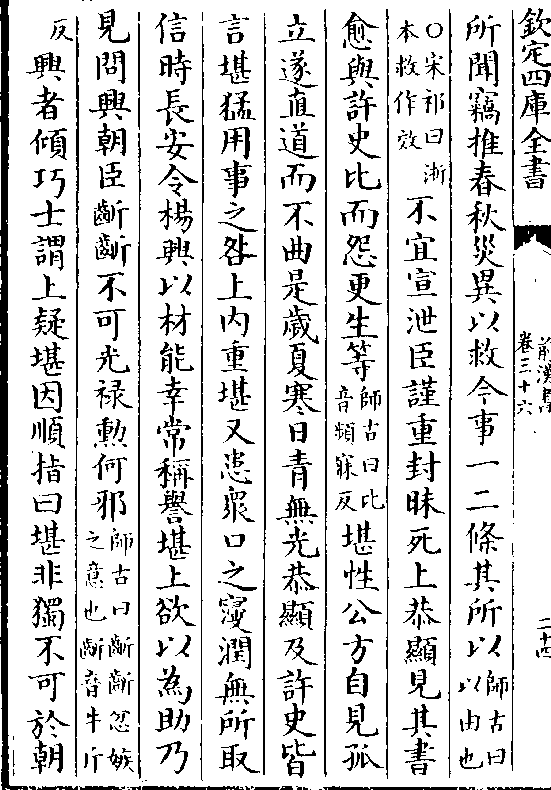 欽定四庫全書
前漢書
卷三十六
二十四
所聞竊推春秋災異以救今事一二條其所以師古曰以由也
○宋祁曰浙本救作效不宜宣泄臣謹重封昧死上恭顯見其書
愈與許史比而怨更生等師古曰比音頻寐反堪性公方自見孤
立遂直道而不曲是歲夏寒日青無光恭顯及許史皆
言堪猛用事之咎上內重堪又患衆口之寖潤無所取
信時長安令楊興以材能幸常稱譽堪上欲以為助乃
見問興朝臣齗齗不可光禄勲何邪師古曰齗齗忿嫉之意也齗音牛斤
反興者傾巧士謂上疑堪因順指曰堪非獨不可於朝